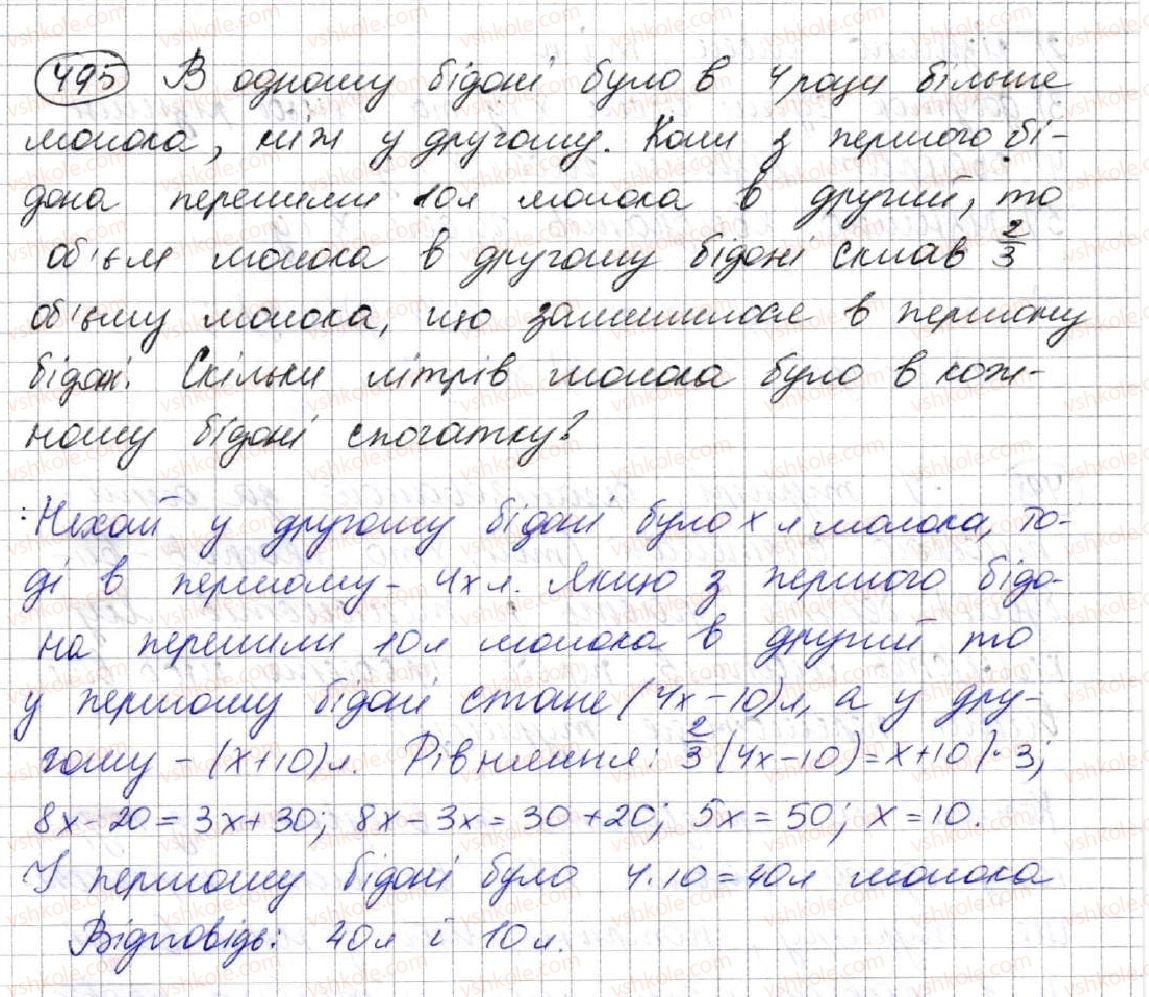 495 В одному бідоні було в 4 рази більше
молока, ніж у другому. Коли з першого бі-
дона перелили 10л молока в другий, то
об'єм молока в другому бідоні склав 2/3
об'єму молока, що залишилося в першому
бідоні. Скільки літрів молока було в кож-
ному бідоні спочатку?
Нехай у другому бідоні було x л молока, то-
ді в першому - 4x л. Якщо з першого бідо-
на перелили 10л молока в другий то
у першому бідоні стане (4x-10)л, а у дру-
гому - (x+10)л. Рівняння: 2/3(4x-10)=x+10|·3;
8x-20=3x+30; 8x-3x=30+20; 5x=50; x=10.
У першому бідоні було 4·10=40л молока
Відповідь: 40л і 10л.